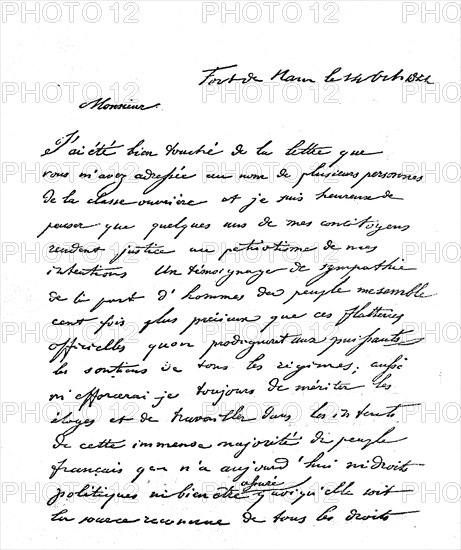 Fort de Ham le 14 Oct. 1844
Monsieur
J'ai été bien touché de la lettre que
vous m'avez adressée au nom de plusieurs personnes
de la classe ouvrière et je suis heureux de
penser que quelques uns de mes concitoyens
rendent justice au patriotisme de mes
intentions Un témoignage de sympathie
de la part d'hommes du peuple me semble
cent fois plus précieux que ces flatteries
officielles qu'on prodiguent aux puissants
les soutiens de tous les régimes; aussi
m'efforcerai je toujours de mériter les
éloges et de travailler dans les interets
de cette immense majorité du peuple
français qui n'a aujourd'hui ni droits
assuré
politiques ni bien être quoiqu'elle soit
la source reconnue de tous les droits
PHOTO12